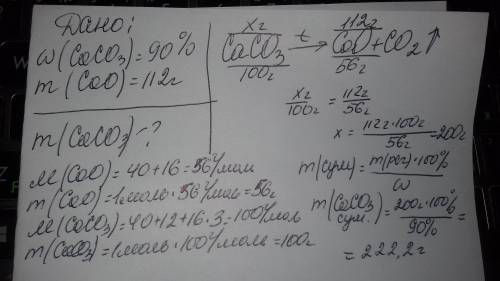 Дано:
ω(CaCO₃)=90%
m(CaO)=112г
m(CaCO₃)-?
M(CaO)=40+16=56г/мол
m(CaO)=1моль·56г/мол=56г
M(CaCO₃)=40+12+16·3=100г/мол
m(CaCO₃)=1моль·100г/мол=100г
xг 112г
CaCO₃ t→ CaO+CO₂↑
100г 56г
xг/100г=112г/56г
x=112г·100г/56г=200г
m(сум)=m(рег)·100%/ω
m(CaCO₃ сум.)=200г·100%/90%=
=222,2г